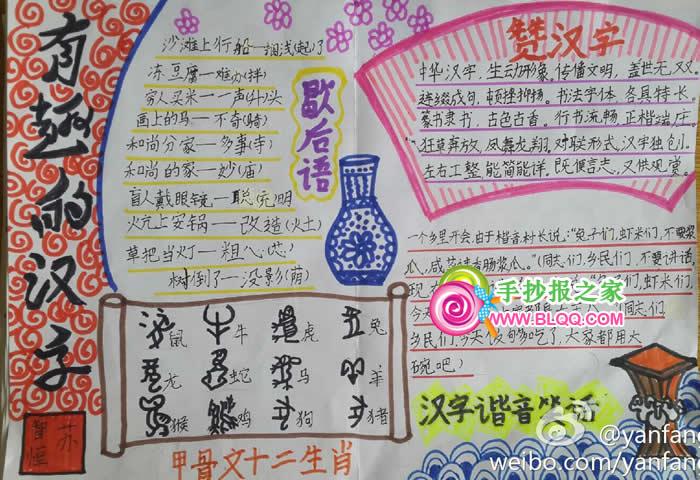 有趣的汉字
苏
智恒
歇后语
沙滩上行船——搁浅(起)了
冻豆腐——难办(拌)
穷人买米——一声(升)头
画上的马——不奇(骑)
和尚分家——多事(寺)
和尚的家——妙(庙)
盲人戴眼镜——聪(充)明
炕上安锅——改造(火土)
草把当灯——粗心(芯)
树倒了——没影(荫)
鼠 牛 虎 兔
龙 蛇 马 羊
猴 鸡 狗 猪
甲骨文十二生肖
赞汉字
中华汉字,生动形象,传播文明,盖世无双,
连缀成句,顿挫抑扬。书法字体,各具特长,
篆书隶书,古色古香。行书流畅,正楷端庄,
狂草奔放,凤舞龙翔,对联形式,汉字独创,
左右工整,能简能详。既便言志,又供观赏。
一个乡里开会,由于楷音,村长说:“兔子们,虾米们,不要浆
瓜,咸菜请香肠浆瓜。”(同志们,乡民们,不要讲话,
子们,虾米们,
(同志们
乡民们,今天饭够吃了,大家都用大
碗吧!)
汉字谐音笑话
手抄报之家
WWW.BLQQ.COM
@yanfang
weibo.com/yanfang